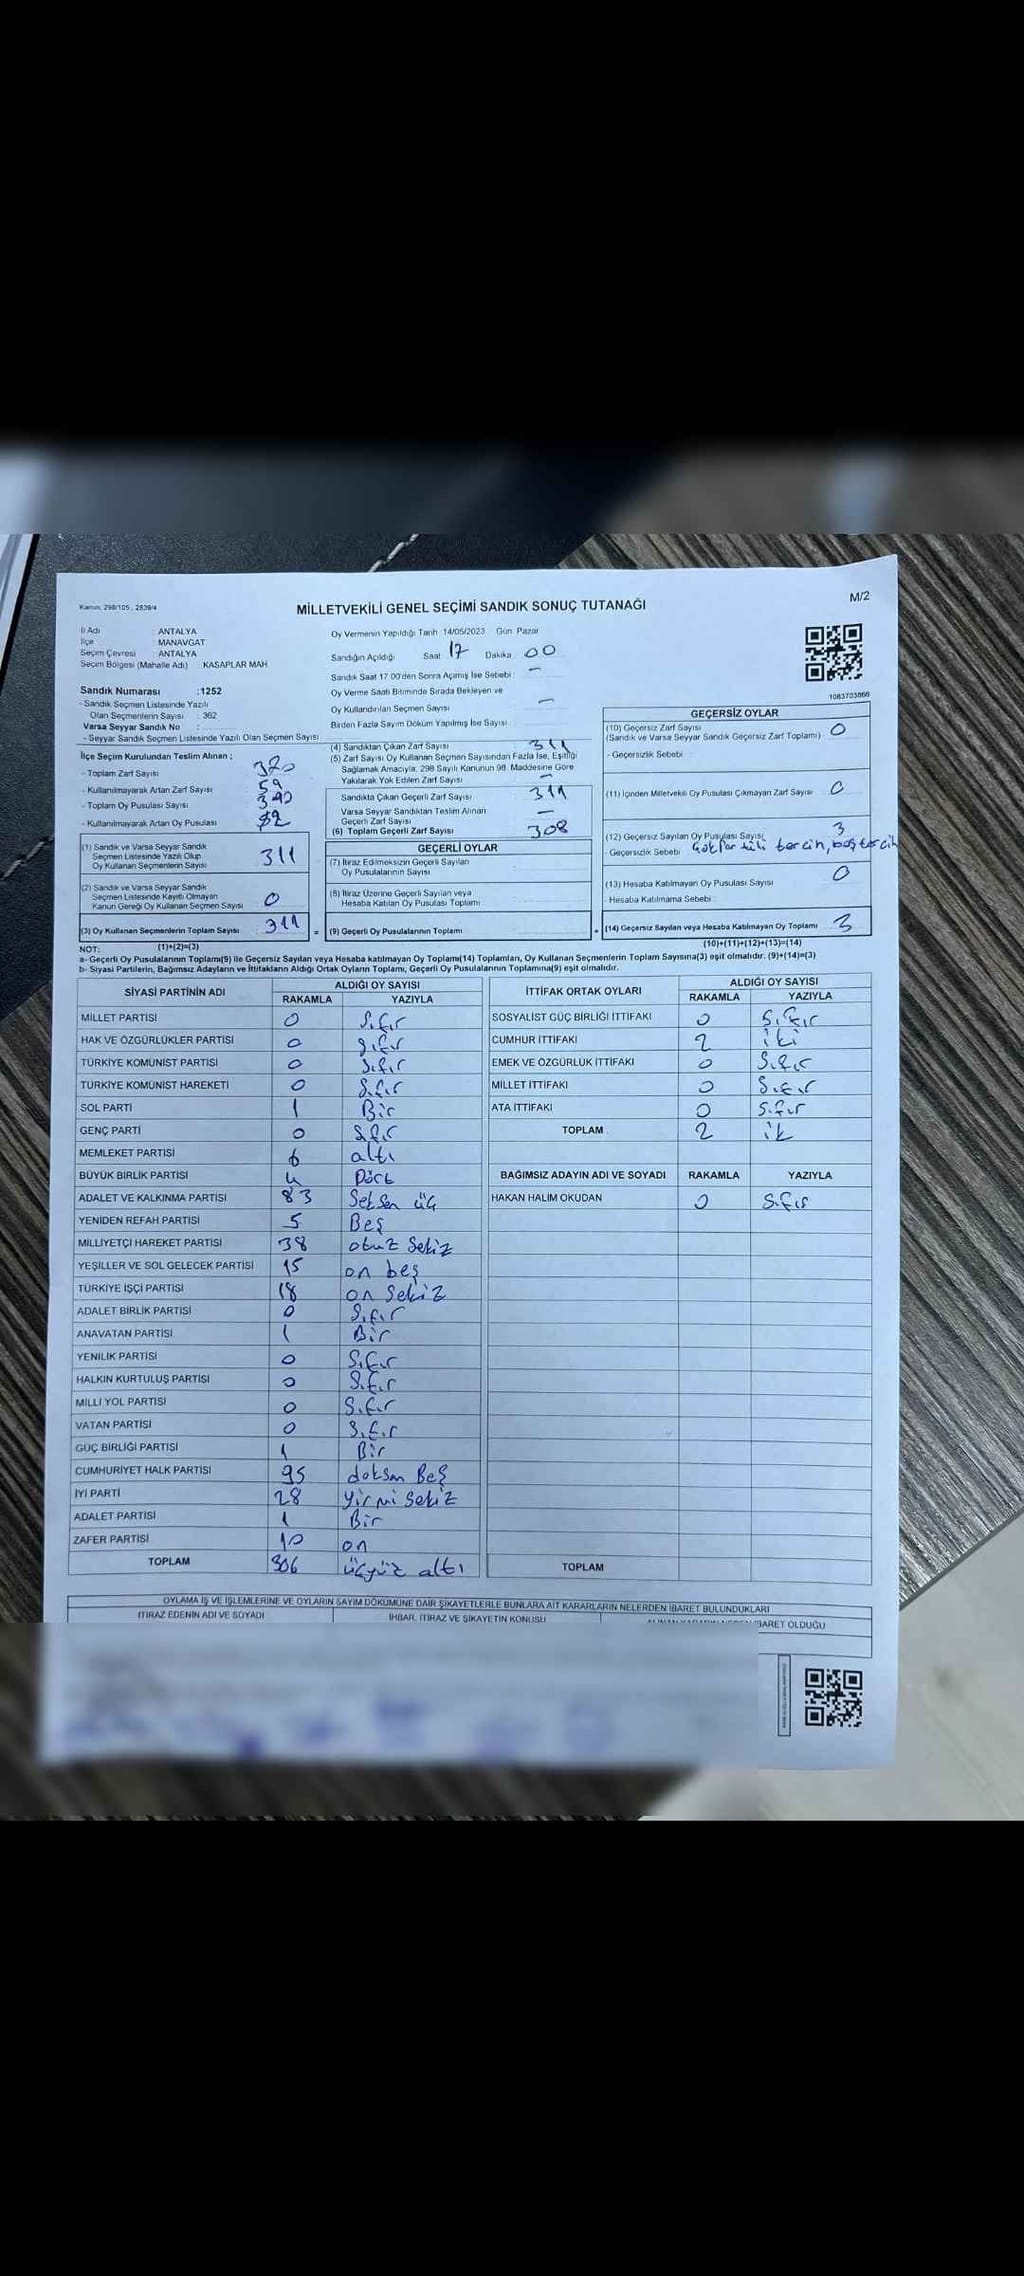 Kanun, 298/105 , 2839/4
MİLLETVEKİLİ GENEL SEÇİMİ SANDIK SONUÇ TUTANAĞI
M/2
İl Adı : ANTALYA
İlçe : MANAVGAT
Seçim Çevresi : ANTALYA
Seçim Bölgesi (Mahalle Adı) : KASAPLAR MAH
Sandık Numarası :1252
- Sandık Seçmen Listesinde Yazılı
Olan Seçmenlerin Sayısı : 362
Varsa Seyyar Sandık No :
- Seyyar Sandık Seçmen Listesinde Yazılı Olan Seçmen Sayısı
Oy Vermenin Yapıldığı Tarih 14/05/2023 Gün Pazar
Sandığın Açıldığı Saat 17 Dakika 00
Sandık Saat 17 00'den Sonra Açılmış İse Sebebi : —
Oy Verme Saati Bitiminde Sırada Bekleyen ve
Oy Kullandırılan Seçmen Sayısı —
Birden Fazla Sayım Döküm Yapılmış İse Sayısı :
1083703866
İlçe Seçim Kurulundan Teslim Alınan ;
- Toplam Zarf Sayısı
- Kullanılmayarak Artan Zarf Sayısı 59
- Toplam Oy Pusulası Sayısı
- Kullanılmayarak Artan Oy Pusulası
(1) Sandık ve Varsa Seyyar Sandık
Seçmen Listesinde Yazılı Olup
Oy Kullanan Seçmenlerin Sayısı 311
(2) Sandık ve Varsa Seyyar Sandık
Seçmen Listesinde Kayıtlı Olmayan
Kanun Gereği Oy Kullanan Seçmen Sayısı 0
(3) Oy Kullanan Seçmenlerin Toplam Sayısı 311 =
(4) Sandıktan Çıkan Zarf Sayısı 311
(5) Zarf Sayısı Oy Kullanan Seçmen Sayısından Fazla İse, Eşitliği
Sağlamak Amacıyla, 298 Sayılı Kanunun 98. Maddesine Göre
Yakılarak Yok Edilen Zarf Sayısı —
Sandıkta Çıkan Geçerli Zarf Sayısı 311
Varsa Seyyar Sandıktan Teslim Alınan
Geçerli Zarf Sayısı —
(6) Toplam Geçerli Zarf Sayısı 308
GEÇERLİ OYLAR
(7) İtiraz Edilmeksizin Geçerli Sayılan
Oy Pusulalarının Sayısı
(8) İtiraz Üzerine Geçerli Sayılan veya
Hesaba Katılan Oy Pusulası Toplamı
(9) Geçerli Oy Pusulalarının Toplamı +
GEÇERSİZ OYLAR
(10) Geçersiz Zarf Sayısı 0
(Sandık ve Varsa Seyyar Sandık Geçersiz Zarf Toplamı)
- Geçersizlik Sebebi :
(11) İçinden Milletvekili Oy Pusulası Çıkmayan Zarf Sayısı 0
(12) Geçersiz Sayılan Oy Pusulası Sayısı 3
- Geçersizlik Sebebi tercih, boş tercih
(13) Hesaba Katılmayan Oy Pusulası Sayısı 0
- Hesaba Katılmama Sebebi
(14) Geçersiz Sayılan veya Hesaba Katılmayan Oy Toplamı 3
NOT: (1)+(2)=(3) (10)+(11)+(12)+(13)=(14)
a- Geçerli Oy Pusulalarının Toplamı(9) ile Geçersiz Sayılan veya Hesaba katılmayan Oy Toplamı(14) Toplamları, Oy Kullanan Seçmenlerin Toplam Sayısına(3) eşit olmalıdır. (9)+(14)=(3)
b- Siyasi Partilerin, Bağımsız Adayların ve İttifakların Aldığı Ortak Oyların Toplamı, Geçerli Oy Pusulalarının Toplamına(9) eşit olmalıdır.
SİYASİ PARTİNİN ADI ALDIĞI OY SAYISI
RAKAMLA YAZIYLA
MİLLET PARTİSİ 0 Sıfır
HAK VE ÖZGÜRLÜKLER PARTİSİ 0 Sıfır
TÜRKİYE KOMÜNİST PARTİSİ 0 Sıfır
TÜRKİYE KOMÜNİST HAREKETİ 0 Sıfır
SOL PARTİ 1 Bir
GENÇ PARTİ 0 Sıfır
MEMLEKET PARTİSİ 6 altı
BÜYÜK BİRLİK PARTİSİ 4 Dört
ADALET VE KALKINMA PARTİSİ 83 Seksen üç
YENİDEN REFAH PARTİSİ 5 Beş
MİLLİYETÇİ HAREKET PARTİSİ 38 otuz Sekiz
YEŞİLLER VE SOL GELECEK PARTİSİ 15 on beş
TÜRKİYE İŞÇİ PARTİSİ 18 on Sekiz
ADALET BİRLİK PARTİSİ 0 Sıfır
ANAVATAN PARTİSİ 1 Bir
YENİLİK PARTİSİ 0 Sıfır
HALKIN KURTULUŞ PARTİSİ 0 Sıfır
MİLLİ YOL PARTİSİ 0 Sıfır
VATAN PARTİSİ 0 Sıfır
GÜÇ BİRLİĞİ PARTİSİ 1 Bir
CUMHURİYET HALK PARTİSİ 95 doksan Beş
İYİ PARTİ 28 yirmi sekiz
ADALET PARTİSİ 1 Bir
ZAFER PARTİSİ 10 on
TOPLAM 306 üçyüz altı
İTTİFAK ORTAK OYLARI ALDIĞI OY SAYISI
RAKAMLA YAZIYLA
SOSYALİST GÜÇ BİRLİĞİ İTTİFAKI 0 Sıfır
CUMHUR İTTİFAKI 2 iki
EMEK VE ÖZGÜRLÜK İTTİFAKI 0 Sıfır
MİLLET İTTİFAKI 0 Sıfır
ATA İTTİFAKI 0 Sıfır
TOPLAM 2 ik
BAĞIMSIZ ADAYIN ADI VE SOYADI RAKAMLA YAZIYLA
HAKAN HALİM OKUDAN 0 Sıfır
TOPLAM
OYLAMA İŞ VE İŞLEMLERİNE VE OYLARIN SAYIM DÖKÜMÜNE DAİR ŞİKAYETLERLE BUNLARA AİT KARARLARIN NELERDEN İBARET BULUNDUKLARI
İTİRAZ EDENİN ADI VE SOYADI İHBAR, İTİRAZ VE ŞİKAYETİN KONUSU İBARET OLDUĞU